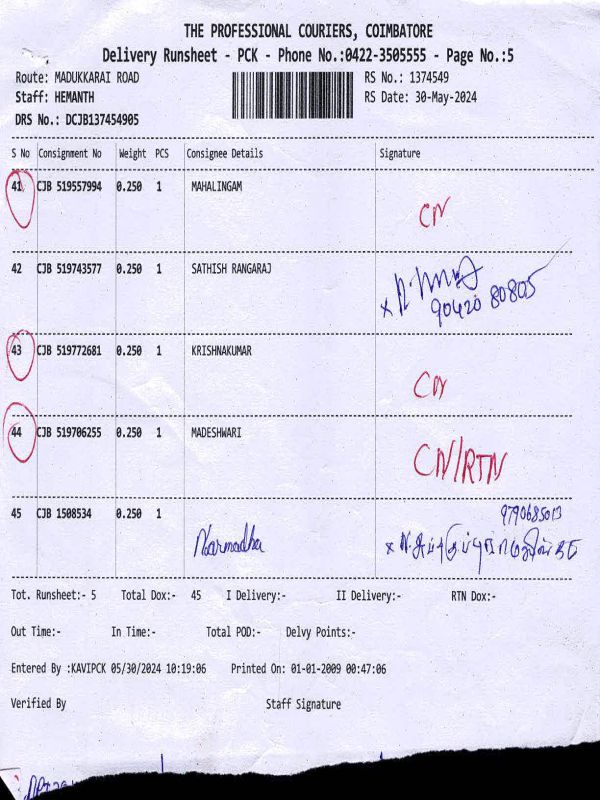 THE PROFESSIONAL COURIERS, COIMBATORE
Delivery Runsheet - PCK - Phone No.:0422-3505555 - Page No.:5
Route: MADUKKARAI ROAD RS No.: 1374549
Staff: HEMANTH RS Date: 30-May-2024
DRS No.: DCJB137454905
S No Consignment No Weight PCS Consignee Details Signature
41 CJB 519557994 0.250 1 MAHALINGAM CN
42 CJB 519743577 0.250 1 SATHISH RANGARAJ
90420 80805
43 CJB 519772681 0.250 1 KRISHNAKUMAR CN
44 CJB 519706255 0.250 1 MADESHWARI CN/RTN
45 CJB 1508534 0.250 1 9790685013
Narmadha
Tot. Runsheet:- 5 Total Dox:- 45 I Delivery:- II Delivery:- RTN Dox:-
Out Time:- In Time:- Total POD:- Delvy Points:-
Entered By :KAVIPCK 05/30/2024 10:19:06 Printed On: 01-01-2009 00:47:06
Verified By Staff Signature